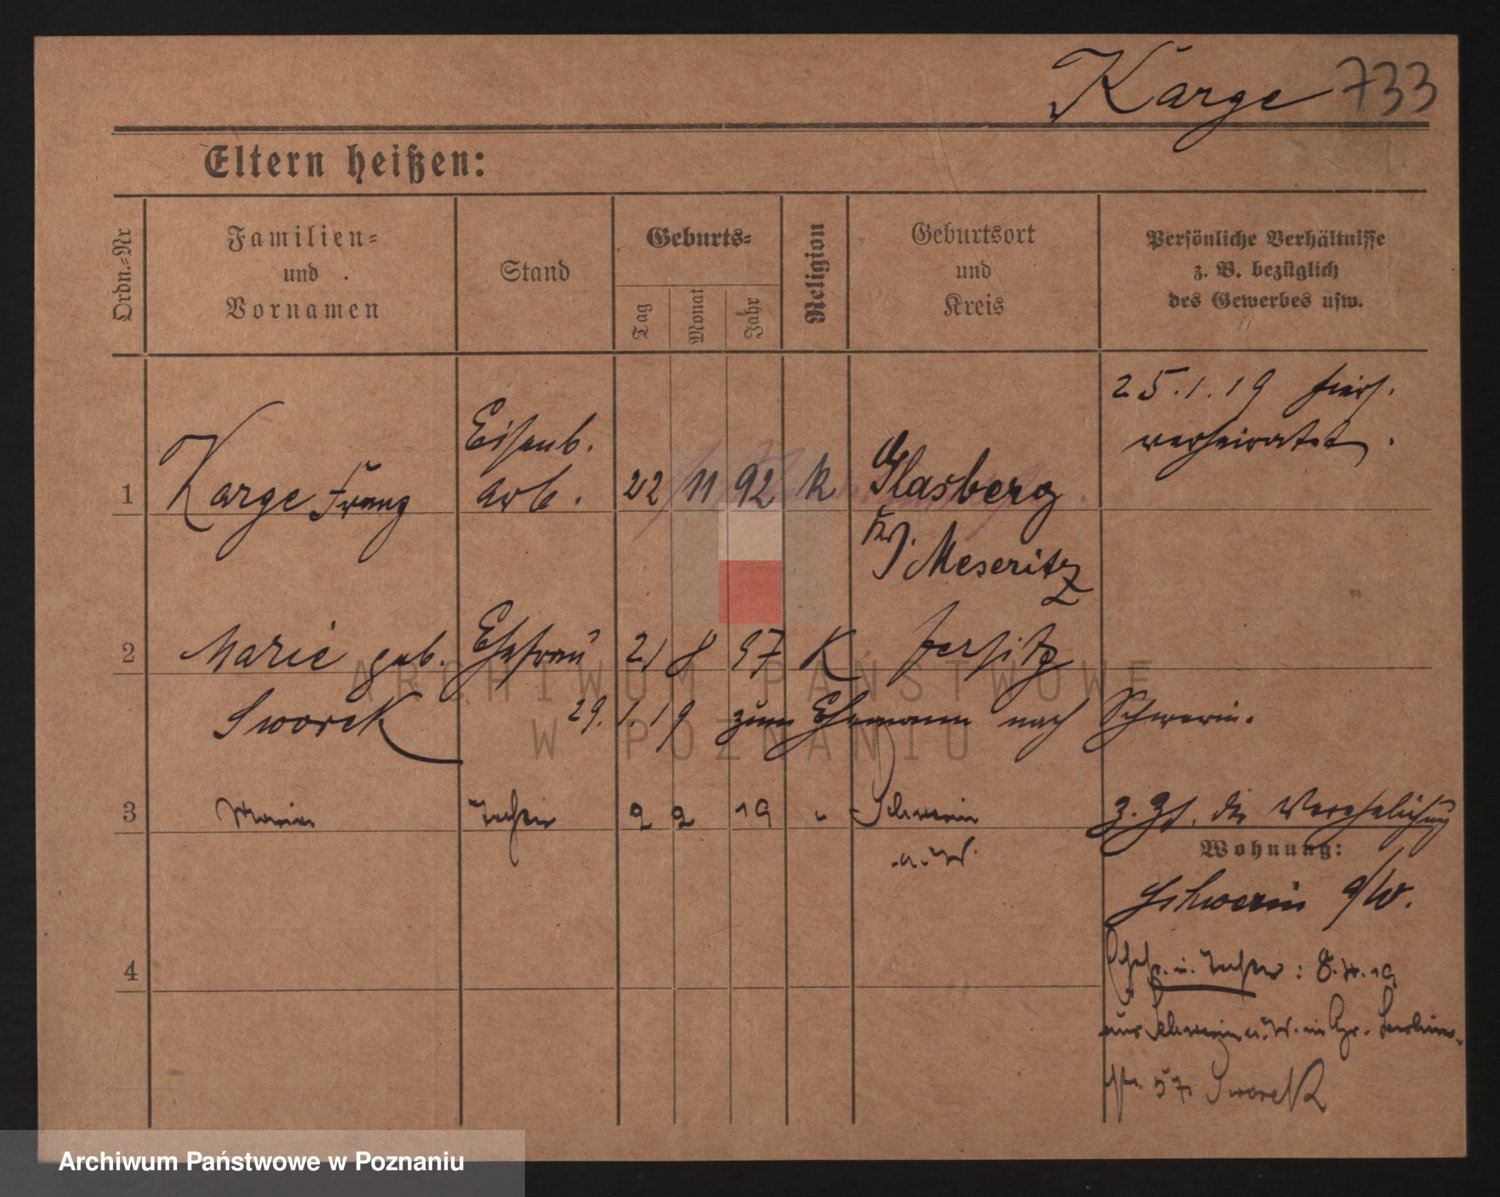 Karge 733
Eltern heißen:
Ordn.-Nr
Familien=
und
Vornamen
Stand
Geburts=
Tag
Monat
Jahr
Religion
Geburtsort
und
Kreis
Persönliche Verhältnisse
z. B. bezüglich
des Gewerbes usw.
25.1.19 hier
verheiratet.
Eisenb.
1 Karge Franz Arb. 22 11 92 K Glasberg
Kr. Meseritz
2 Marie geb. Ehefrau 21 8 97 K Jersitz
Sworek 29.1.19 zum Ehemann nach Schwerin.
3 Maria Tochter 2 2 19 " Schwerin
a. W.
z. Zt. der Verehelichung
Wohnung:
Schwerin a/W.
4
Ehefr. u. Tochter: 8. 4. 19
aus Schwerin a. W. in Gr. Berliner-
str. 57 Sworek
ARCHIWUM PAŃSTWOWE
W POZNANIU
Archiwum Państwowe w Poznaniu